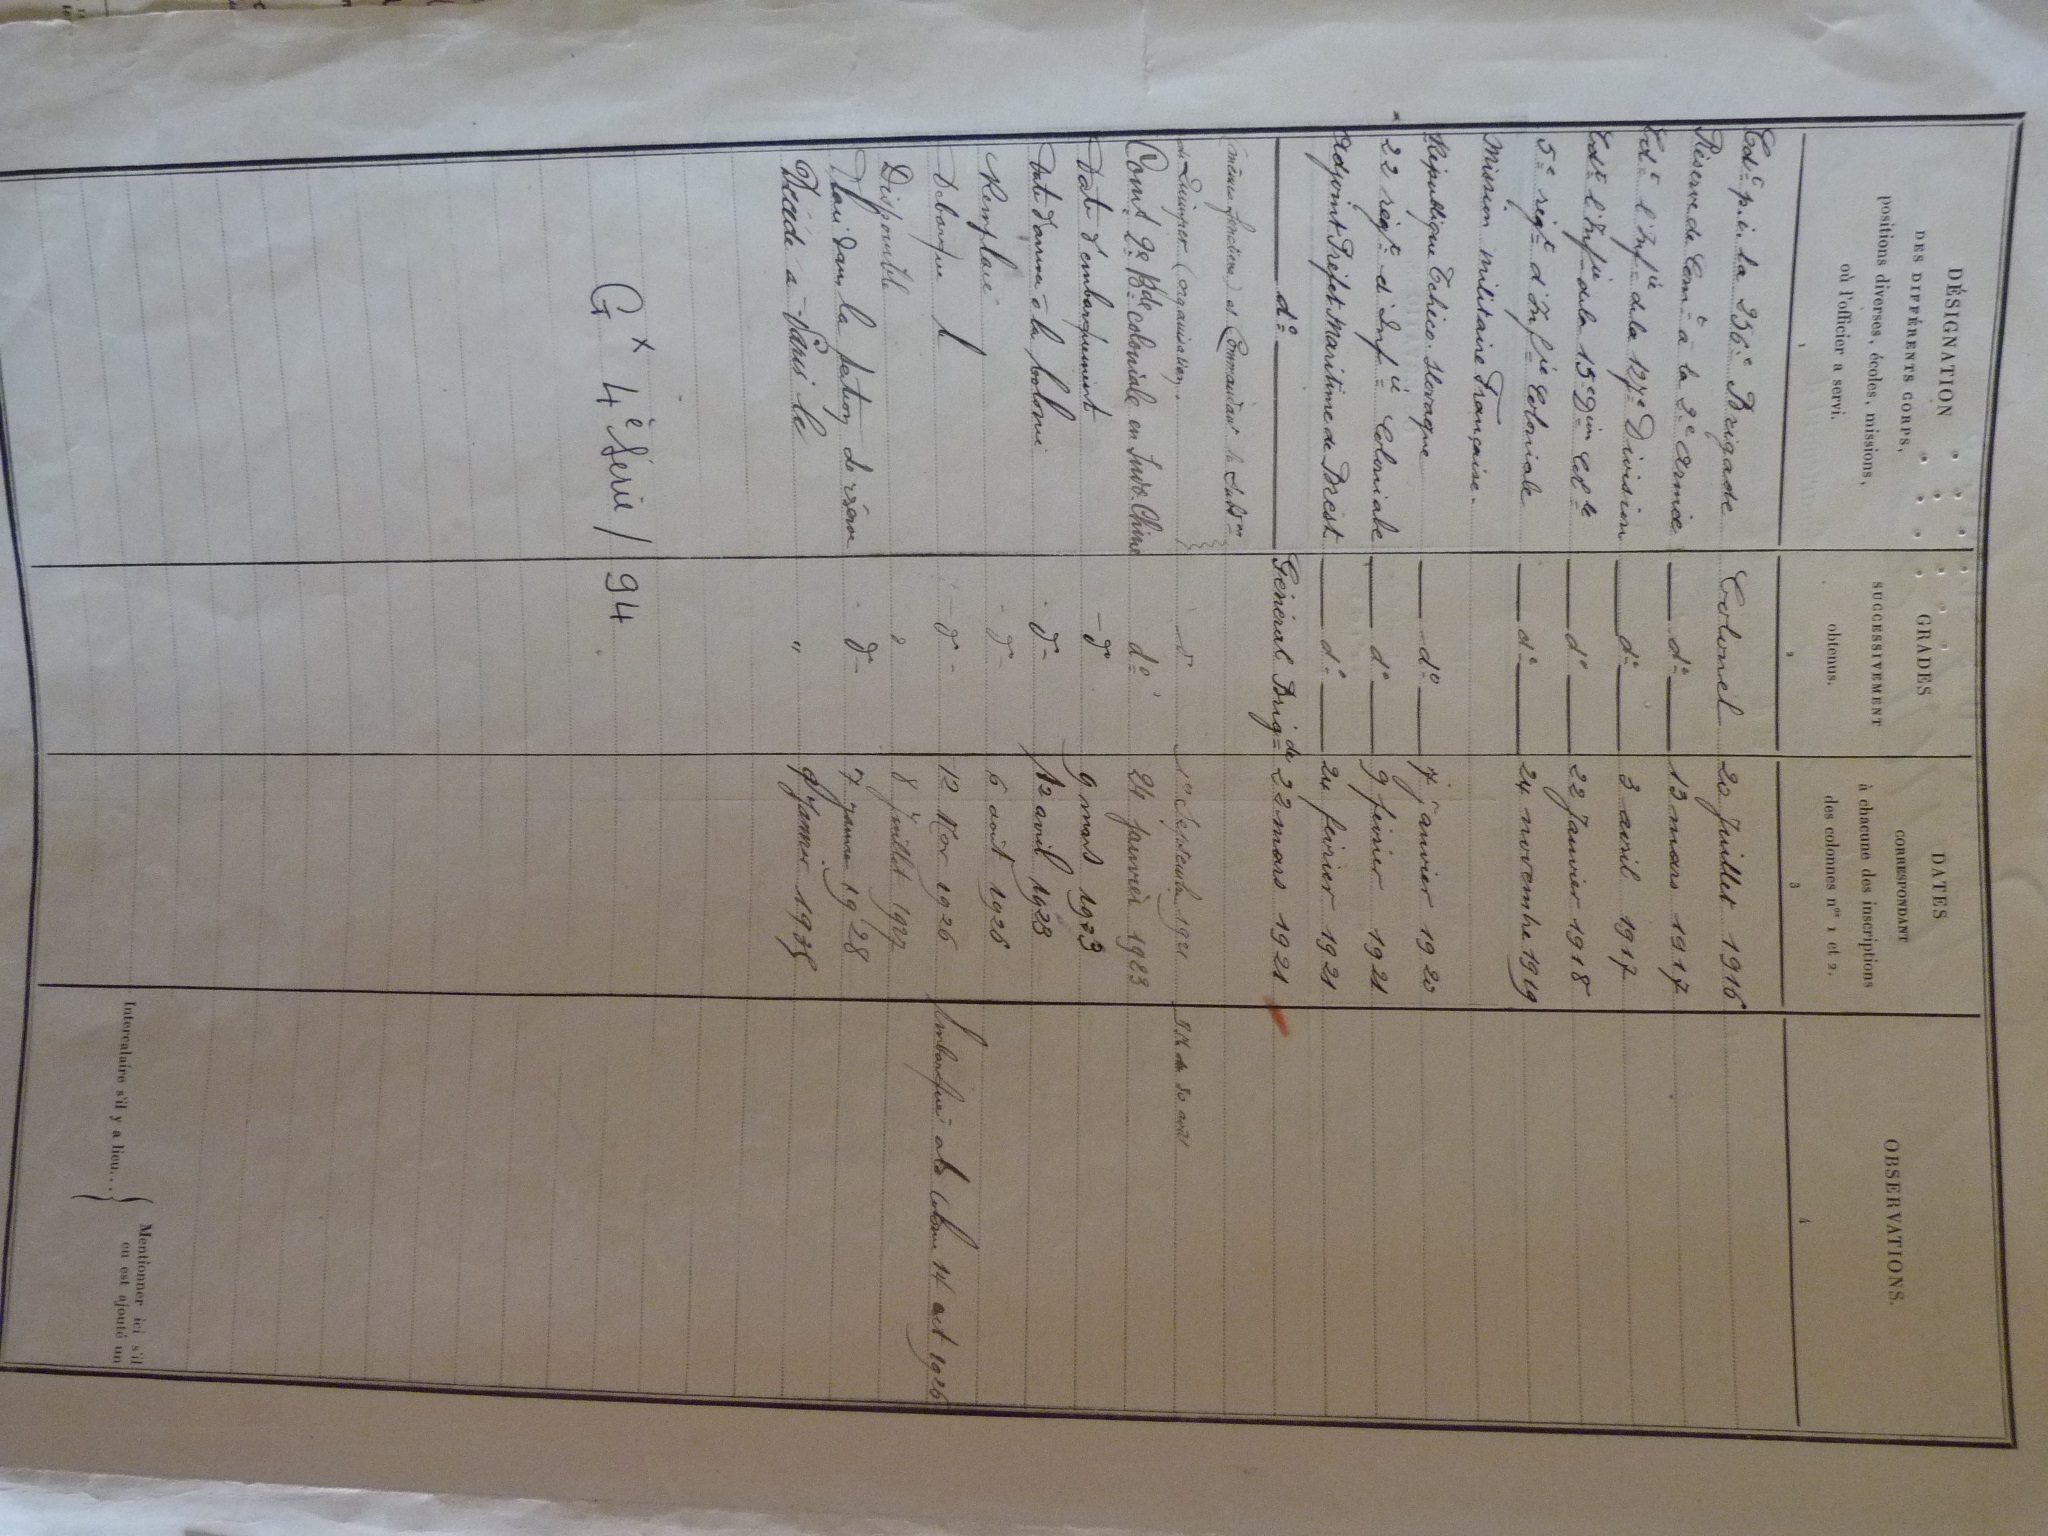 DÉSIGNATION
DES DIFFÉRENTS CORPS,
positions diverses, écoles, missions,
où l'officier a servi.
1
GRADES
SUCCESSIVEMENT
obtenus.
2
DATES
CORRESPONDANT
à chacune des inscriptions
des colonnes nos 1 et 2.
3
OBSERVATIONS.
4
Cdt p.i. la 256e Brigade Colonel 20 Juillet 1916
Réserve de Comt à la 2e Armée do 13 mars 1917
Cdt l'Infie de la 127e Division do 3 avril 1917
Cdt l'Infie de la 15e Don Colle do 22 Janvier 1918
5e régt d'Infie Coloniale do 24 novembre 1919
Mission Militaire Française.
République Tchéco-Slovaque do 7 janvier 1920
22 régt d'Infie Coloniale do 9 février 1921
Adjoint Préfet Maritime de Brest do 24 février 1921
do Général Brigde 22 mars 1921
(même fonctions) et Commandant la Subdon
de Quimper (organisation) do 1er Septembre 1921 du 30 août
Comt 2e Bde coloniale en Indo-Chine do 24 janvier 1923
Date d'embarquement do 9 mars 1923
Date d'arrivée à la colonie do 12 avril 1923
Remplacé do 6 août 1926
Débarqué do 12 Nov 1926 Embarqué à la colonie 14 oct 1926
Disponible do 8 Juillet 1927
Placé dans la section de réserve do 7 Janvier 1928
Décédé à Paris le " Janvier
Gx 4e Série / 94
Intercalaire s'il y a lieu....
Mentionner ici s'il
en est ajouté un